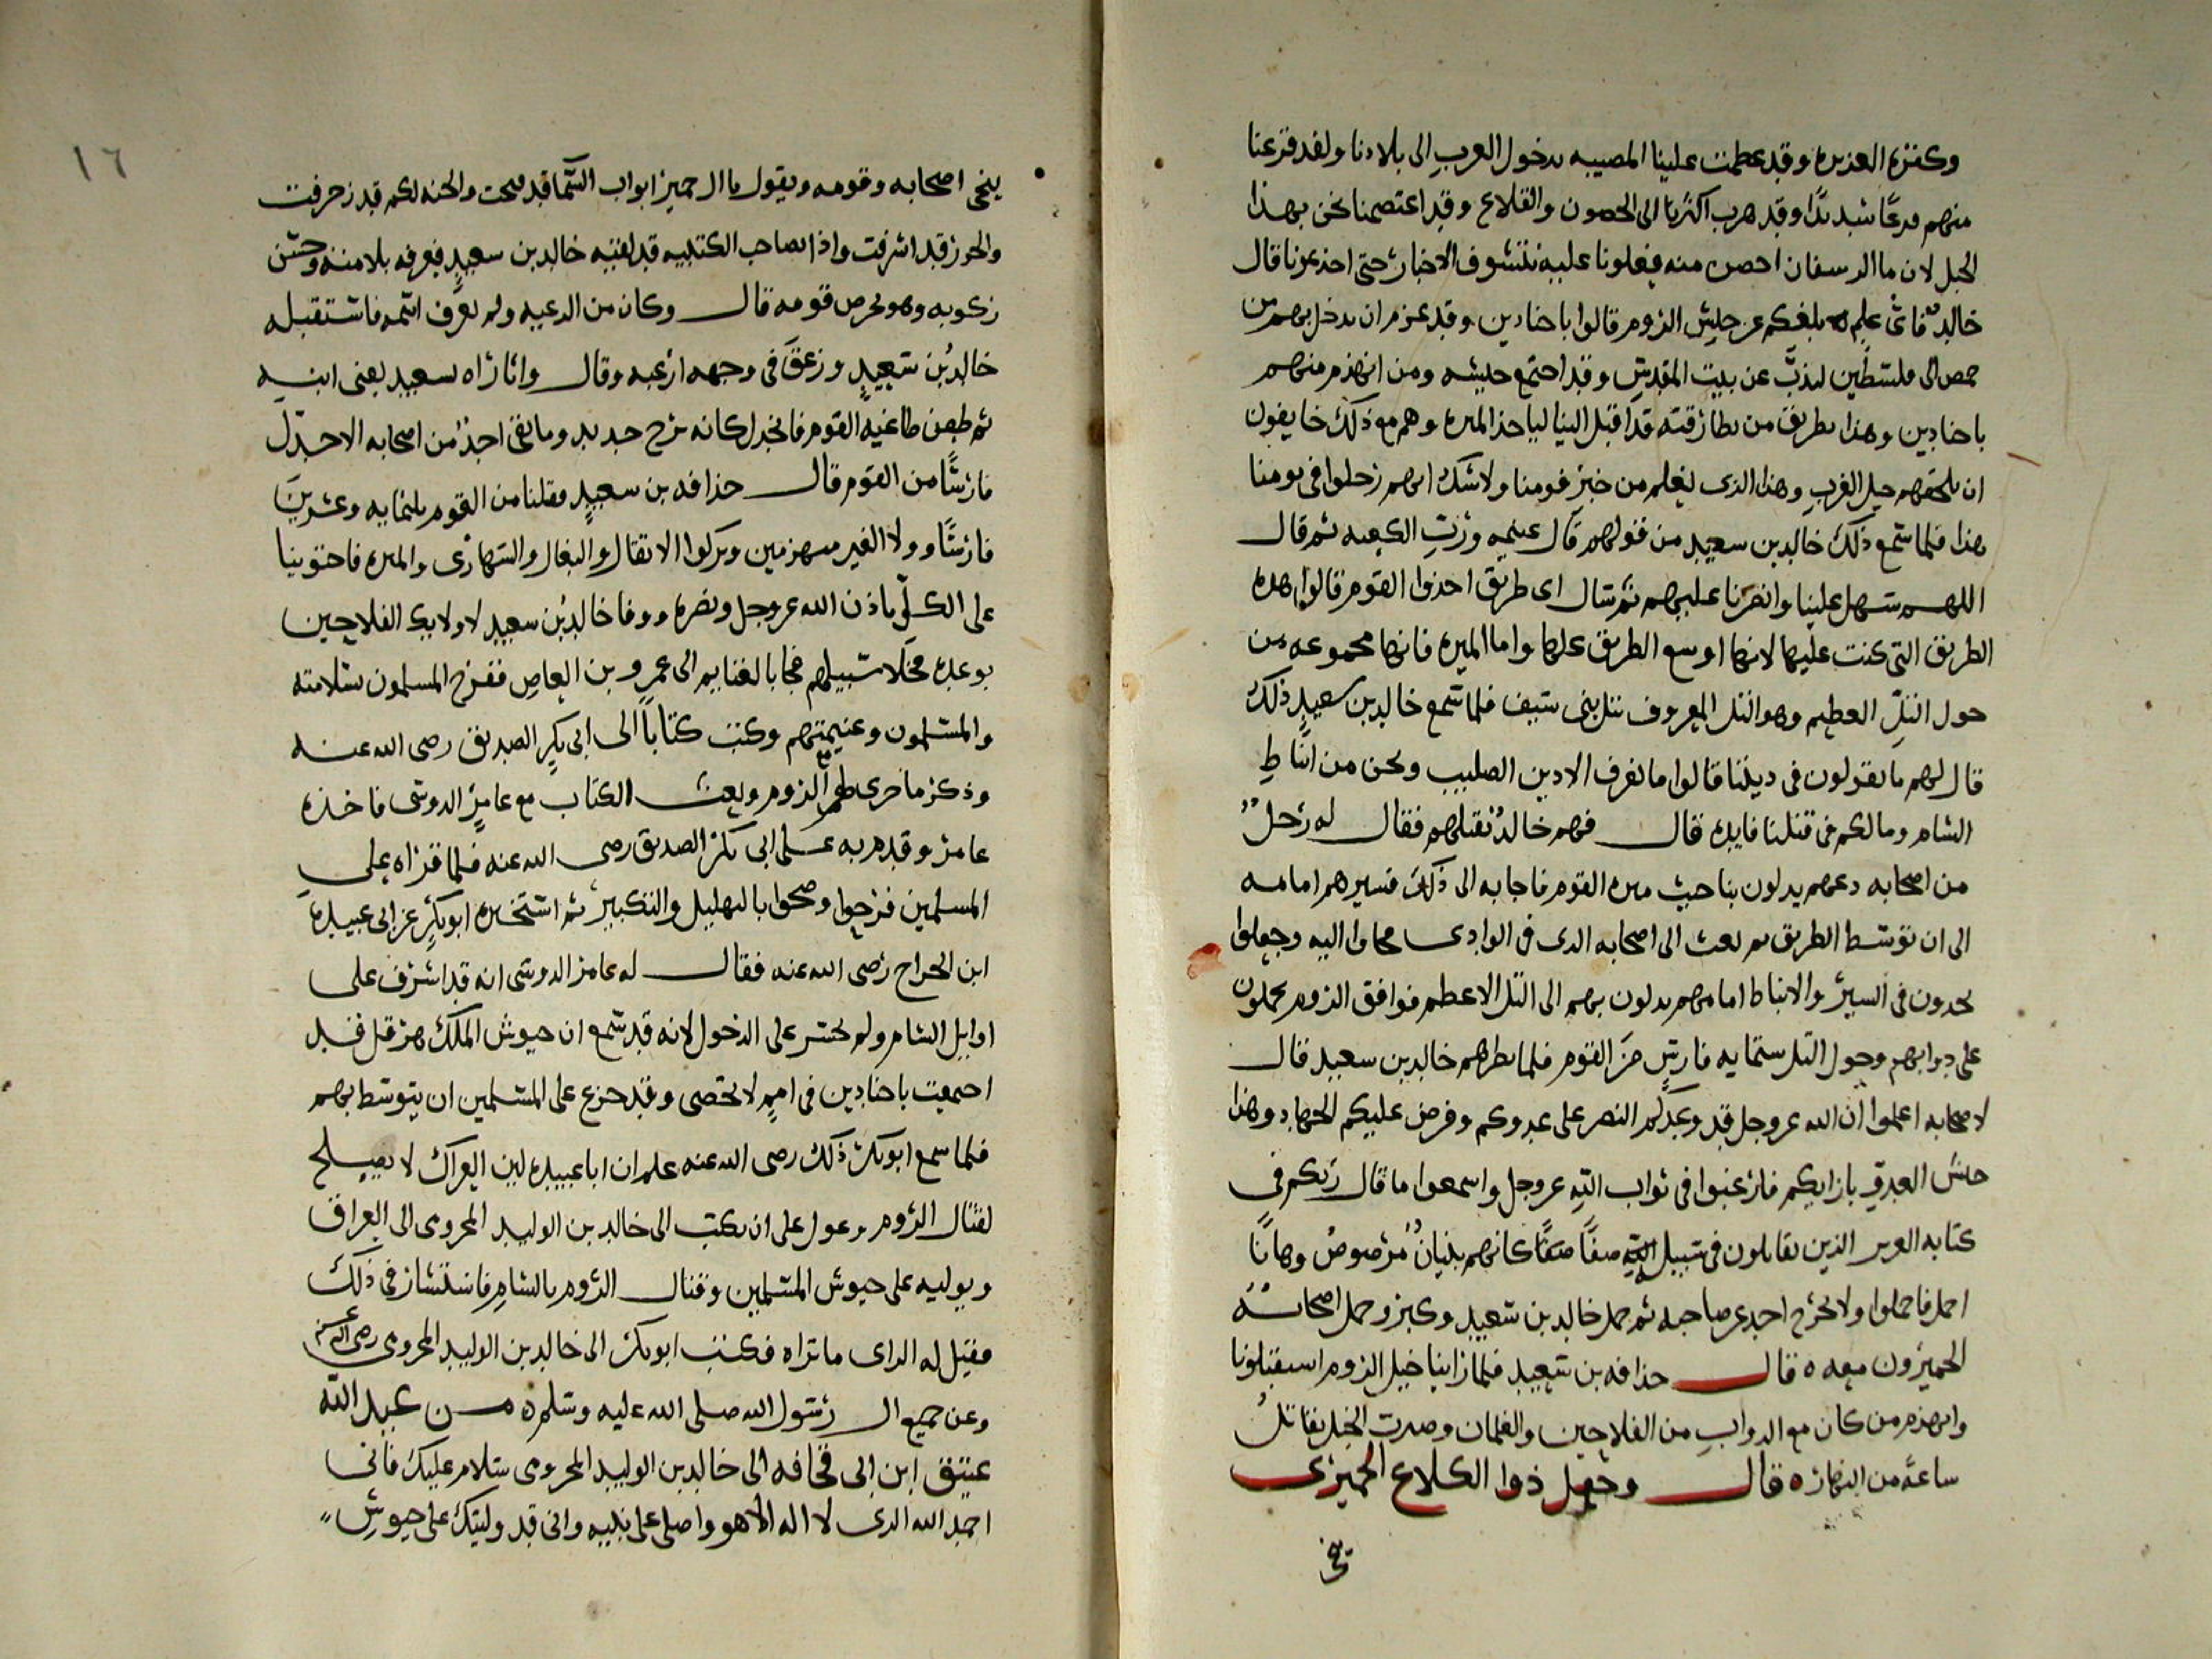 وكنزه العزيره وقد عظمت علينا المصيبه بدخول العرب الى بلادنا ولقد فزعنا
منهم فزعًا شديدًا وقد هرب اكثرنا الى الحصون والقلاع وقد اعتصمنا نحن بهذا
الجبل لان ما الرستاق احصن منه فعلونا عليه نتشوف الاخبار حتى اخذتمونا قال
خالد فاي علم بلغكم عن جيش الروم قالوا باجنادين وقد عزم ان يدخل بهم من
حمص الى فلسطين ليذب عن بيت المقدس وقد اجتمع جيشه ومن انهزم منهم
باجنادين وهذا بطريق من بطارقته قد اقبل الينا لياخذ الميره وهم مع ذلك خايفون
ان تلحقهم خيل العرب وهذا الذى نعلم من خبر قومنا ولا شك انهم رحلوا فى يومنا
هذا فلما سمع ذلك خالد بن سعيد من قولهم قال غنيمه ورب الكعبه ثم قال
اللهم سهل علينا وانصرنا عليهم ثم سال اى طريق اخذوا القوم قالوا هذه
الطريق التى كنت عليها لانها اوسع الطريق كلها واما الميره فانها مجموعه من
حول التل العظيم وهو التل المعروف بتل بنى سيف فلما سمع خالد بن سعيد ذلك
قال لهم ما تقولون فى ديننا قالوا ما نعرف الا دين الصليب ونحن من انباط
الشام وما لكم فى قتلنا فايده قال فهم خالد بقتلهم فقال له رجل
من اصحابه دعهم يدلون بنا حيث ميره القوم فاجابه الى ذلك فسيرهم امامه
الى ان توسط الطريق ثم بعث الى اصحابه الذى فى الوادى فجاوا اليه وجعلوا
يجدون فى السير والانباط امامهم يدلون بهم الى التل الاعظم فوافق الروم يحملون
على دوابهم وحول التل ستمايه فارس من القوم فلما نظرهم خالد بن سعيد قال
لاصحابه اعلموا ان الله عز وجل قد وعدكم النصر على عدوكم وفرض عليكم الجهاد وهذا
جيش العدو بازايكم فارغبوا فى ثواب الله عز وجل واسمعوا ما قال ربكم فى
كتابه العزيز الذين يقاتلون فى سبيل الله صفًا صفًا كانهم بنيان مرصوص وها انا
احمل فاحملوا ولا يخرج احد عن صاحبه ثم حمل خالد بن سعيد وكبر وحمل اصحابه
الحميرون معه ه قال حذافه بن سعيد فلما راينا خيل الروم استقبلونا
وانهزم من كان مع الدواب من الفلاحين والغلمان وصبرت الخيل بقتال
ساعه من النهار ه قال وجعل ذوا الكلاع الحميرى
ينخى
١٦
ينخى اصحابه وقومه ويقول يا ال حمير ابواب السما قد فتحت والجنه لكم قد زخرفت
والحور قد اشرفت واذا بصاحب الكتيبه قد لقيه خالد بن سعيد فعرفه بلامته وحسن
ركوبه وهو يحرض قومه قال وكان من الرعيه ولم نعرف اسمه فاستقبله
خالد بن سعيد وزعق فى وجهه ارعبه وقال واثاراه لسعيد يعنى ابنه
ثم طعن طاغية القوم فانجدل كانه برج حديد وما بقى احد من اصحابه الا جدل
فارسًا من القوم قال حذافه بن سعيد فقتلنا من القوم ثلثمايه وعشرين
فارسًا وولا الغير منهزمين وتركوا الاثقال والبغال والشهارى والميره فاحتوينا
على الكل باذن الله عز وجل ونصره ووفا خالد بن سعيد لاولايك الفلاحين
بوعده فخلا سبيلهم فجا بالغنايم الى عمرو بن العاص ففرح المسلمون بسلامته
والمسلمون وغنيمتهم وكتب كتابًا الى ابى بكر الصديق رضى الله عنه
وذكر ما جرى لهم مع الروم وبعث الكتاب مع عامر الدوسى فاخذه
عامر وقدم به على ابى بكر الصديق رضى الله عنه فلما قراه على
المسلمين فرحوا وضجوا بالتهليل والتكبير ثم استخبره ابو بكر عن ابى عبيده
ابن الجراح رضى الله عنه فقال له عامر الدوسى انه قد اشرف على
اوايل الشام ولم يجسر على الدخول لانه قد سمع ان جيوش الملك هرقل قد
اجتمعت باجنادين فى امم لا تحصى وقد جزع على المسلمين ان يتوسط بهم
فلما سمع ابو بكر ذلك رضى الله عنه علم ان ابا عبيده لين العراك لا يصلح
لقتال الروم وعول على ان يكتب الى خالد بن الوليد المخزومى الى العراق
ويوليه على جيوش المسلمين وقتال الروم بالشام فاستشار فى ذلك
فقيل له الراى ما تراه فكتب ابو بكر الى خالد بن الوليد المخزومى رضى الله عنه
وعن جميع ال رسول الله صلى الله عليه وسلم ه من عبد الله
عتيق ابن ابى قحافه الى خالد بن الوليد المخزومى سلام عليك فانى
احمد الله الذى لا اله الا هو واصلى على نبيه وانى قد وليتك على جيوش